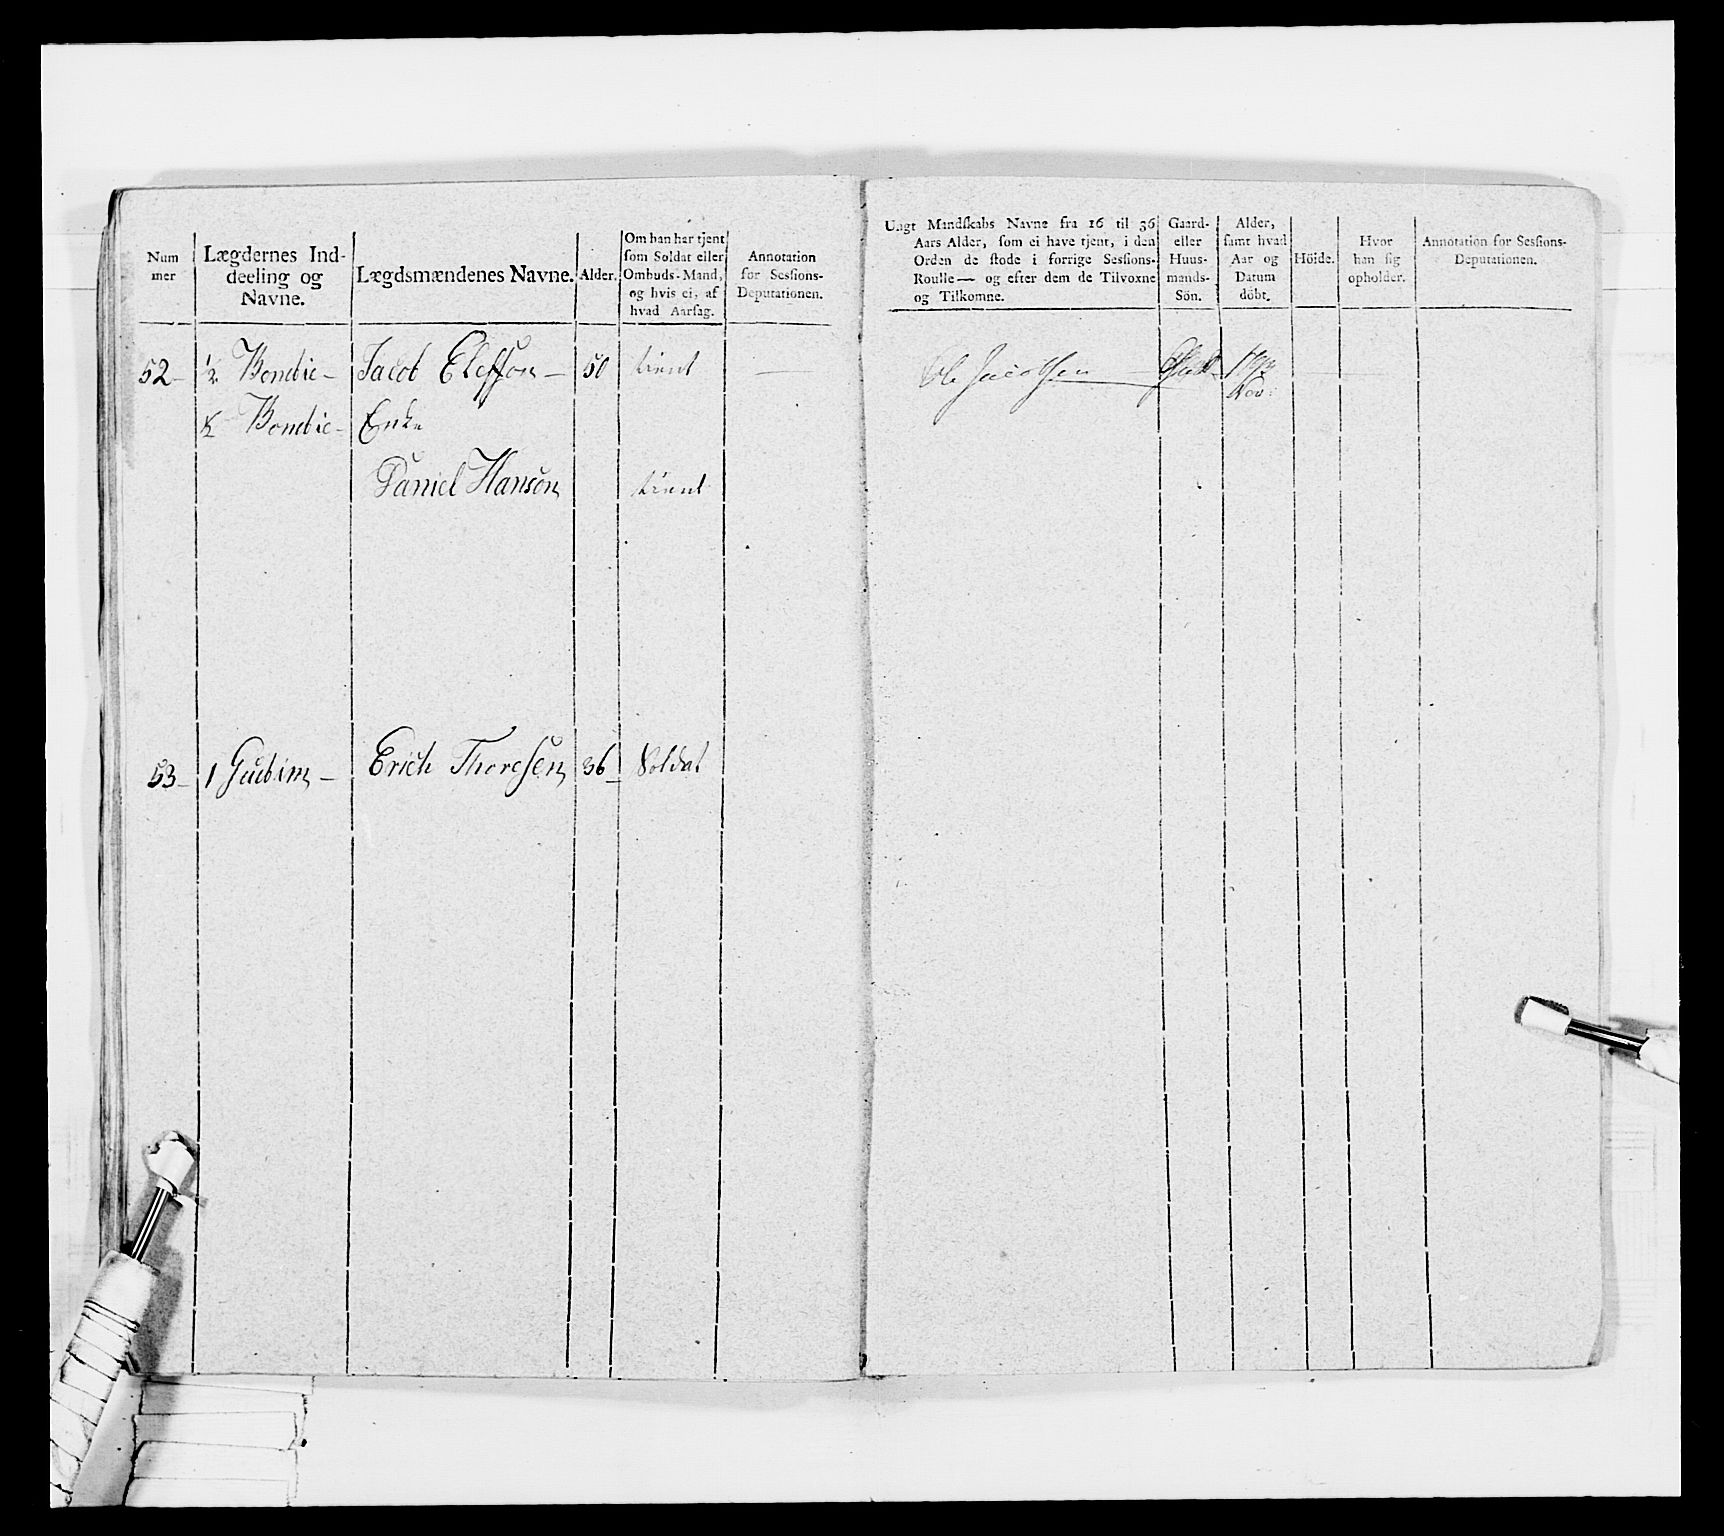 Num
mer
Lægdernes Ind-
deeling og
Navne.
Lægdsmændenes Navne.
Alder.
Om han har tjent
som Soldat eller
Ombuds-Mand,
og hvis ei, af
hvad Aarsag.
Annotation
for Sessions-
Deputationen.
Ungt Mandskabs Navne fra 16 til 36
Aars Alder, som ei have tjent, i den
Orden de stode i forrige Sessions-
Roulle — og efter dem de Tilvoxne
og Tilkomne.
Gaard-
eller
Huus-
mands-
Sön.
Alder,
samt hvad
Aar og
Datum
döbt.
Höide.
Hvor
han sig
opholder.
Annotation for Sessions-
Deputationen.
52 - ½ Bondie - Jacob Elefson - 50 tient — Ole Jacobsen
½ Bondie - Enke
Daniel Hanson tient
53 - 1 Gudim - Erich Thoresen 36 - Soldat